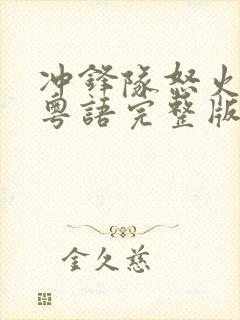 冲鋒隊怒火
粵語完整版
金久慈